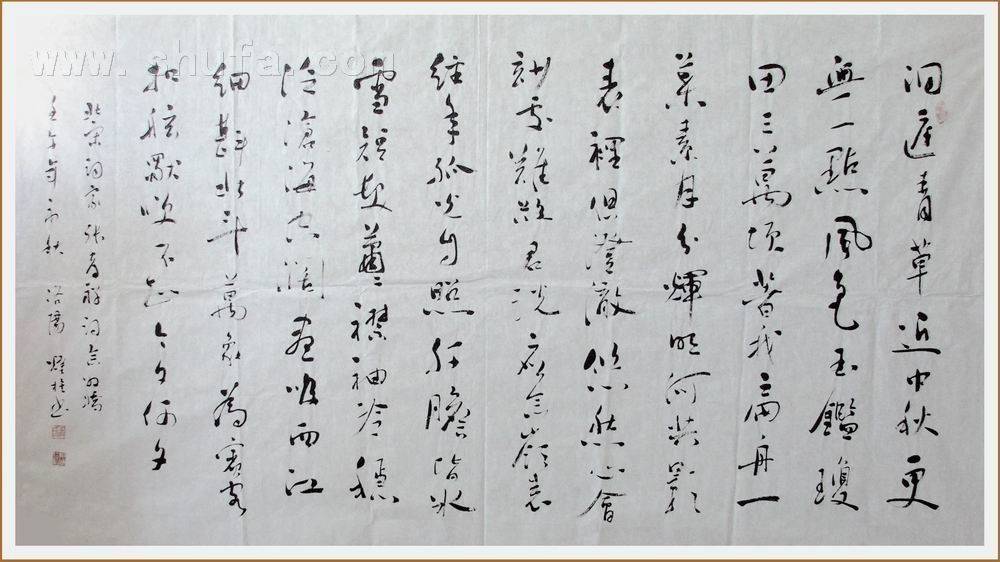 www.shufa.com
洞庭青草近中秋更
無一點風色玉鑑瓊
田三萬頃著我扁舟一
葉素月分輝明河共影
表裡俱澄澈悠然心會
妙處難與君說應念嶺表
經年孤光自照肝膽皆冰
雪短髮蕭々襟袖冷穩
泛滄海空闊盡吸西江
細斟北斗萬象為賓客
扣舷獨咲不知今夕何夕
北宋詞家張孝祥詞念奴嬌
壬午年秋 洛陽 書